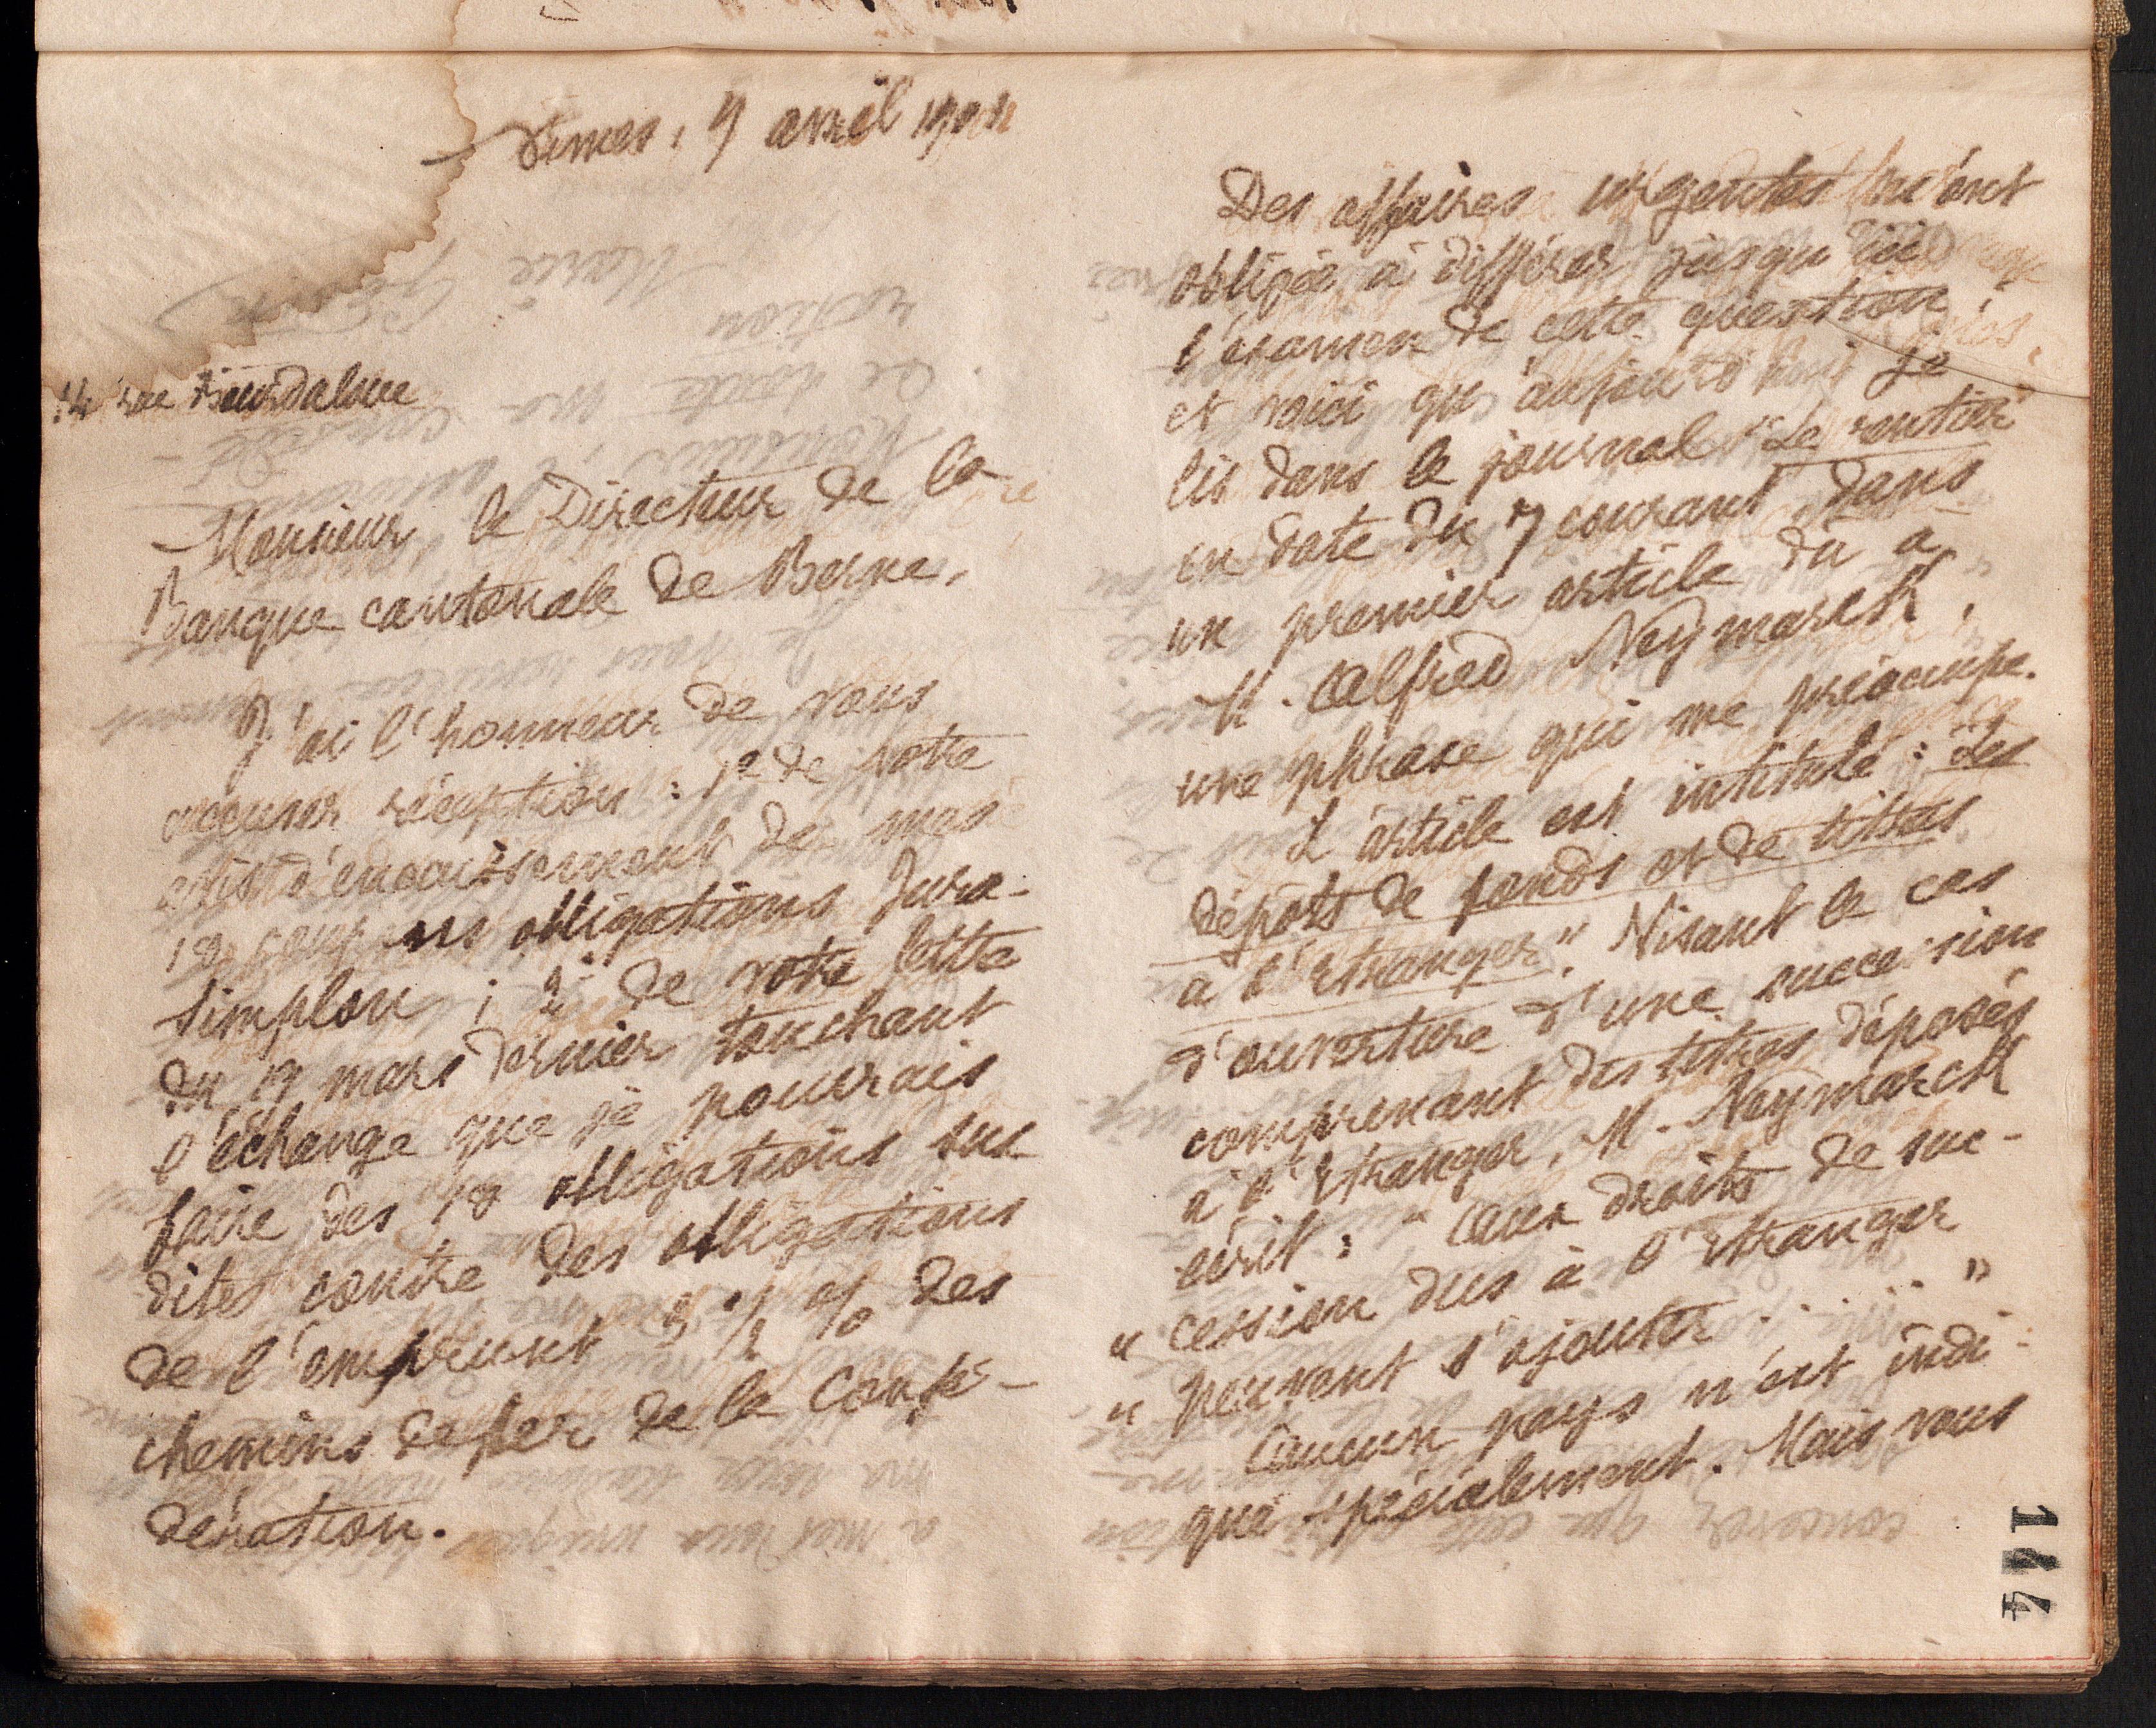 Nimes, 9 avril 1904
14 rue Bourdaloue
Monsieur le Directeur de la
Banque cantonale de Berne,
J'ai l'honneur de vous
accuser réception : 1º de votre
avis d'encaissement de mes
19 coupons obligations Jura-
Simplon ; 2º de votre lettre
du 19 mars dernier touchant
l'échange que je pourrais
faire des 19 obligations sus
dites contre des obligations
de l'emprunt 3 1/2 % des
chemins de fer de la Confé-
dération.
Des affaires urgentes m'ont
obligée à différer jusqu'ici
l'examen de cette question
et voici qu'aujourd'hui je
lis dans le journal "Le rentier"
en date du 7 courant, dans
un premier article dû à
M. Alfred Neymarck,
une phrase qui me préoccupe.
L'article est intitulé : Les
dépôts de fonds et de titres
à l'Etranger". Visant le cas
d'ouverture d'une succession
comprenant des titres déposés
à l'Etranger, M. Neymarck
écrit : " Aux droits de suc-
" cession dus à l'Etranger
" peuvent s'ajouter . . . . "
Aucun pays n'est indi-
qué spécialement. Mais vous
144